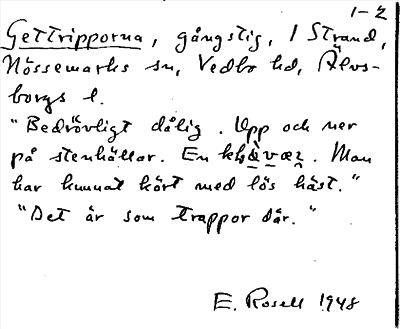 1-2
Gettripporna, gångstig, i Strand,
Nössemarks sn, Vedbo hd, Älvs-
borgs l.
"Bedrövligt dålig. Upp och ner
på stenhällar. En
Man
har kunnat kört med lös häst."
"Det är som trappor där."
E. Rosell 1948